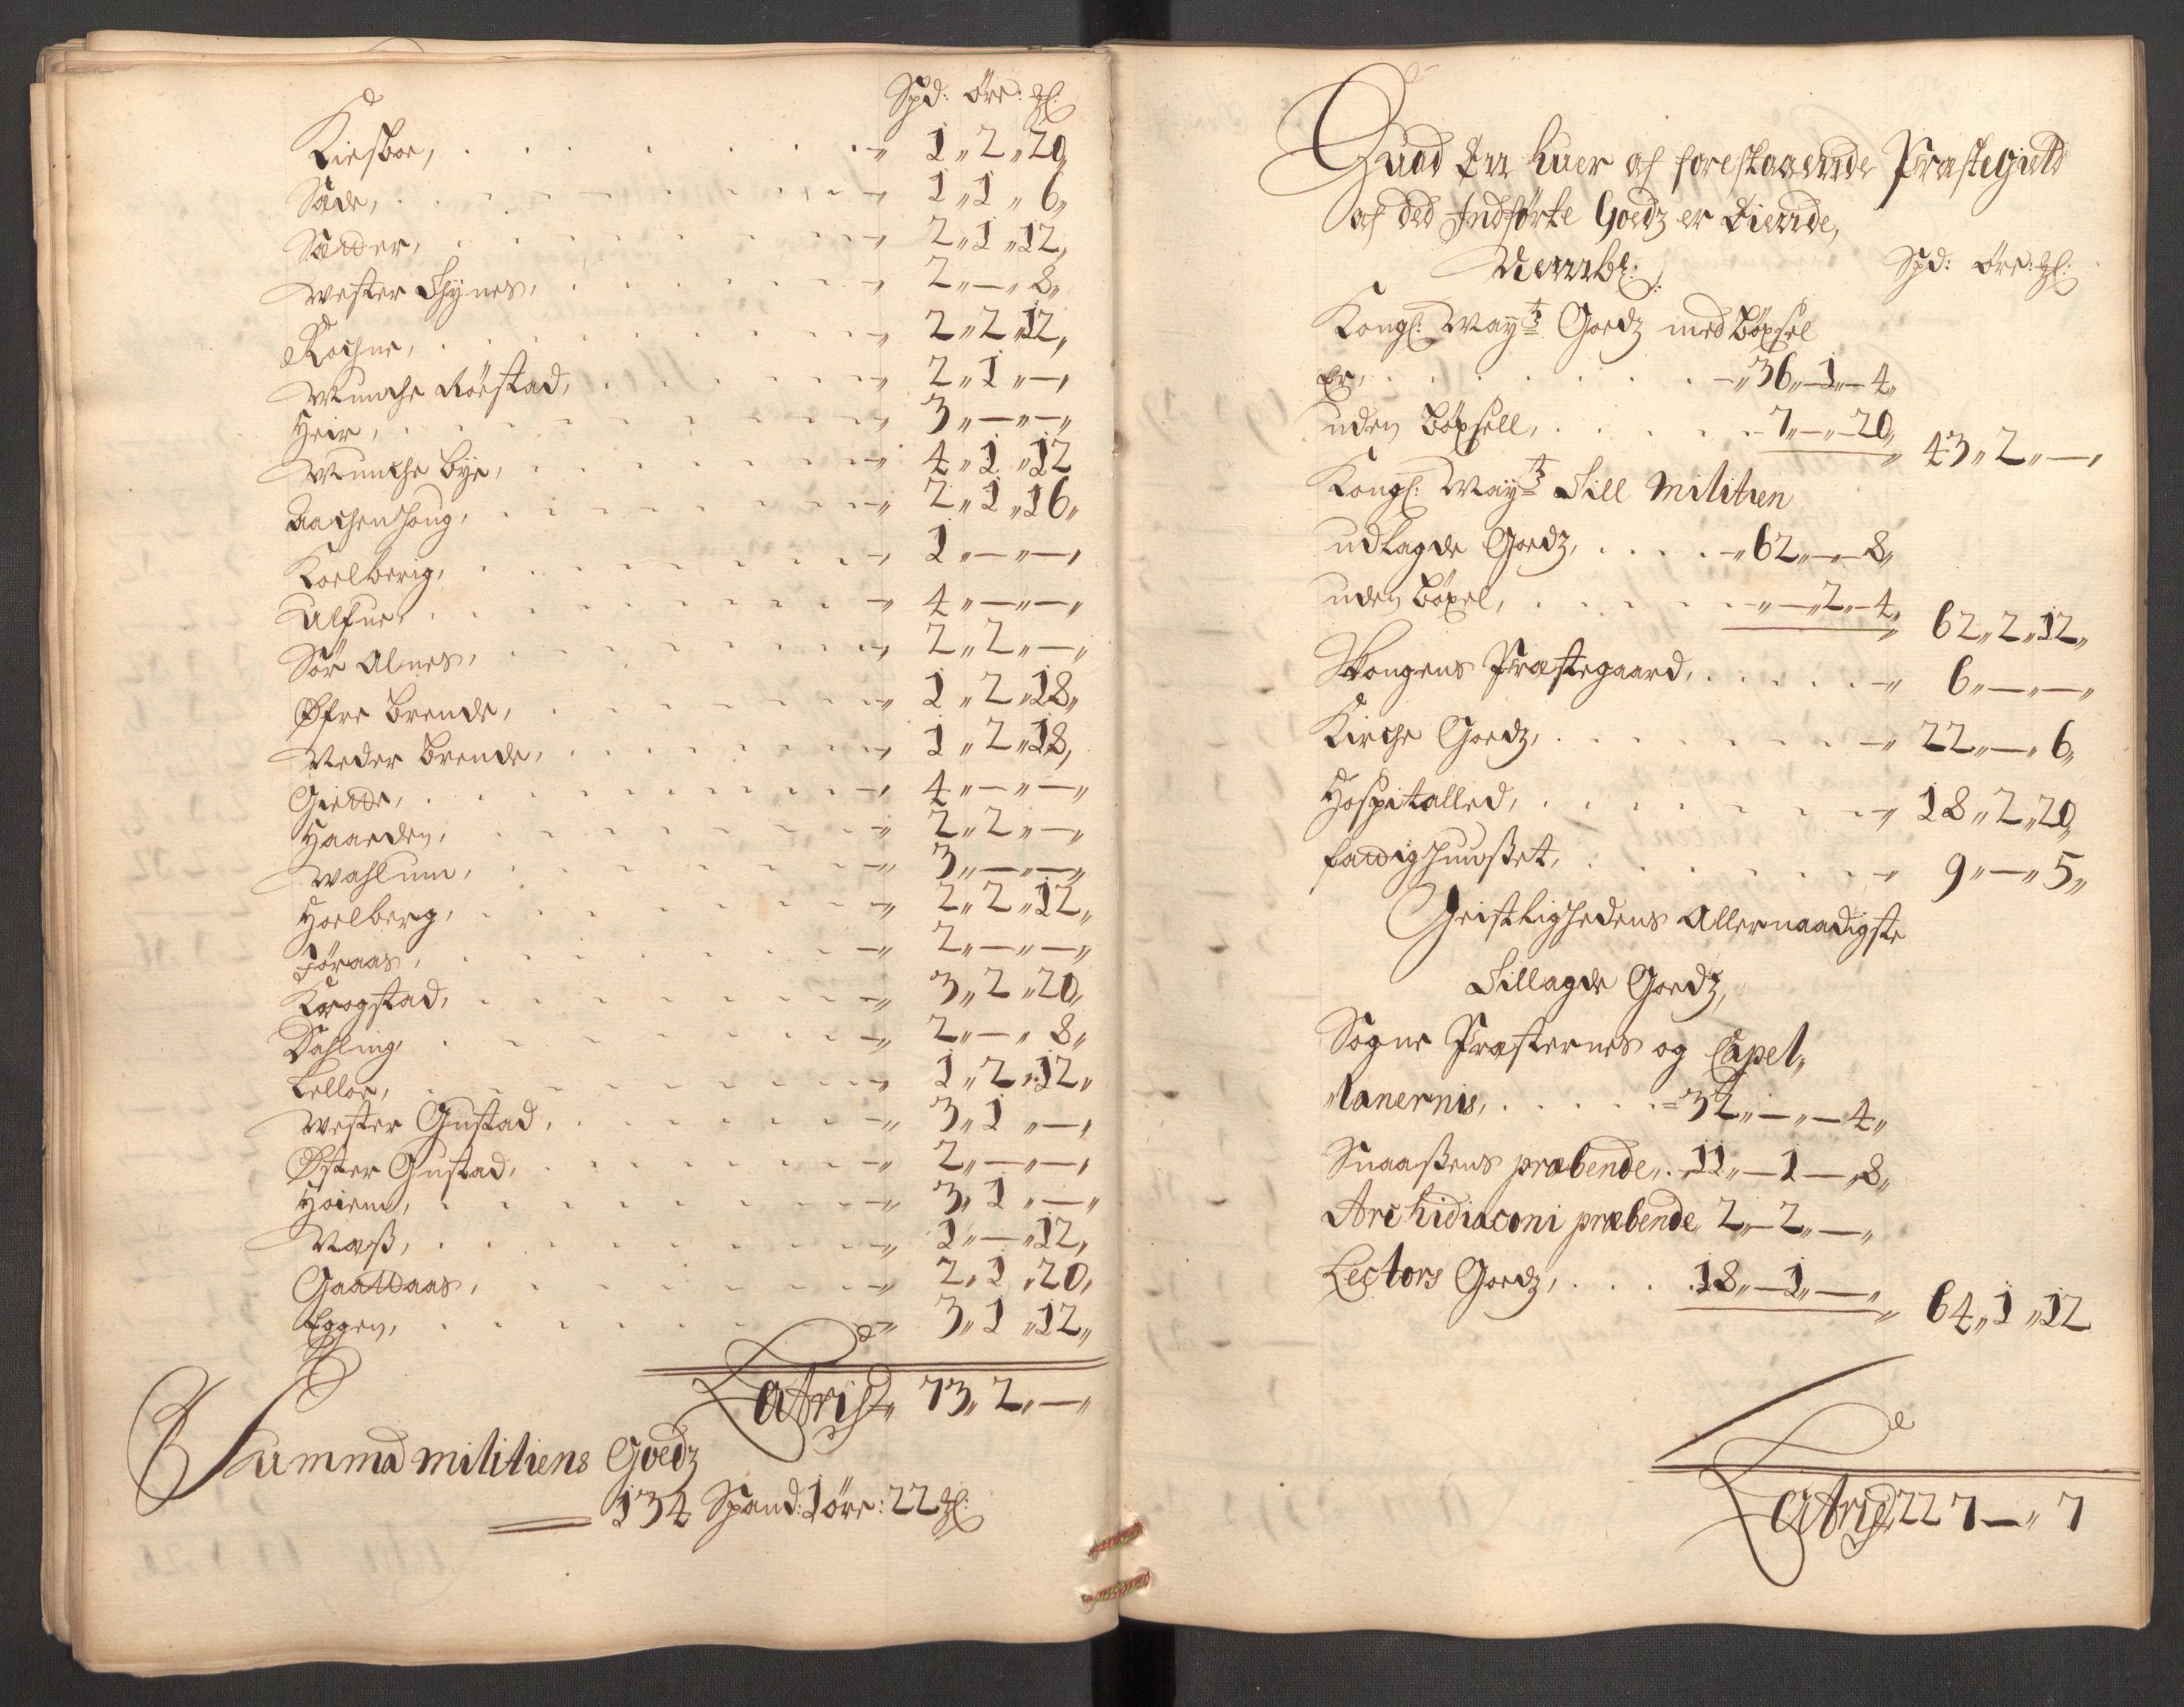 Spd: Öre: gl:
Kiesboe, 1 „ 2 „ 20„
Sade, 1 „ 1 „ 6„
Sætter, 2 „ 1 „ 12„
Wester Thynes, 2 „ — „ 8„
Rochne, 2 „ 2 „ 12„
Munche Röestad, 2 „ 1 „ —„
Heir, 3 „ — „ —„
Munche bÿe, 4 „ 1 „ 12
Aachenhoug, 2 „ 1 „ 16„
Koelberig, 1 „ — „ —„
Alfnes 4 „ — „ —„
Sör Alnes, 2 „ 2 „ —„
Öfre Brende, 1 „ 2 „ 18„
Neder Brende, 1 „ 2 „ 18„
Giette, 4 „ — „ —„
Haarden, 2 „ 2 „ —„
Wahlum, 3 „ — „ —„
Hoelberg, 2 „ 2 „ 12„
Föraas, 2 „ — „ —„
Krogstad, 3 „ 2 „ 20„
Dahling, 2 „ — „ 8„
Lellor, 1 „ 2 „ 12„
Wester Gustad, 3 „ 1 „ —„
Öster Gustad, 2 „ — „ —„
Hoiem, 3 „ 1 „ —„
Næß, 1 „ — „ 12„
Gaattaas, 2 „ 1 „ 20„
Eggen, 3 „ 1 „ 12„
Latris 73 „ 2 „ —„
Summa militiens Goedz
134 Spand: 1 öre: 22 gl:
Huad En huer af forestaaende Præstegield
af ded Indförte Goedz er Eiende,
Nemblig:
Spd: Öre: gl:
Kongl: Mayts Goedz med Böxsel
er, 36 „ 1 „ 4„
uden Böxsell, 7 „ — „ 20„ 43 „ 2 „ —„
Kongl: Mayts Till Militien
udlagde Goedz, 62 „ — „ 8„
uden Böxel, — „ 2 „ 4„ 62 „ 2 „ 12„
Skongens Præstegaard, 6 „ — „ —„
Kirche Goedz, 22 „ — „ 6„
Hospitalled, 18 „ 2 „ 20„
fattighuußet, 9 „ — „ 5„
Geistlighedens Allernaadigste
Tillagde Goedz,
Sogne Præsternes og Capel„
„lanernis, 32 „ — „ 4„
Snaaßens præbende, 11 „ 1 — 8„
Archidiaconi præbende 2 „ 2 „ —„
Lectors Goedz, 18 „ 1 „ —„ 64 „ 1 „ 12
Latris 227 — „ 7